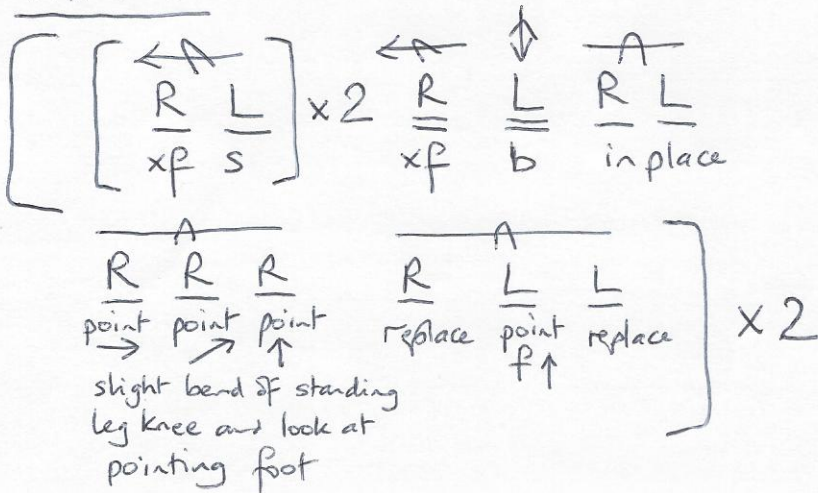 R L x2 R L R L
xf s xf b in place
R R R R L L
point point point replace point replace x2
f
slight bend of standing
leg knee and look at
pointing foot